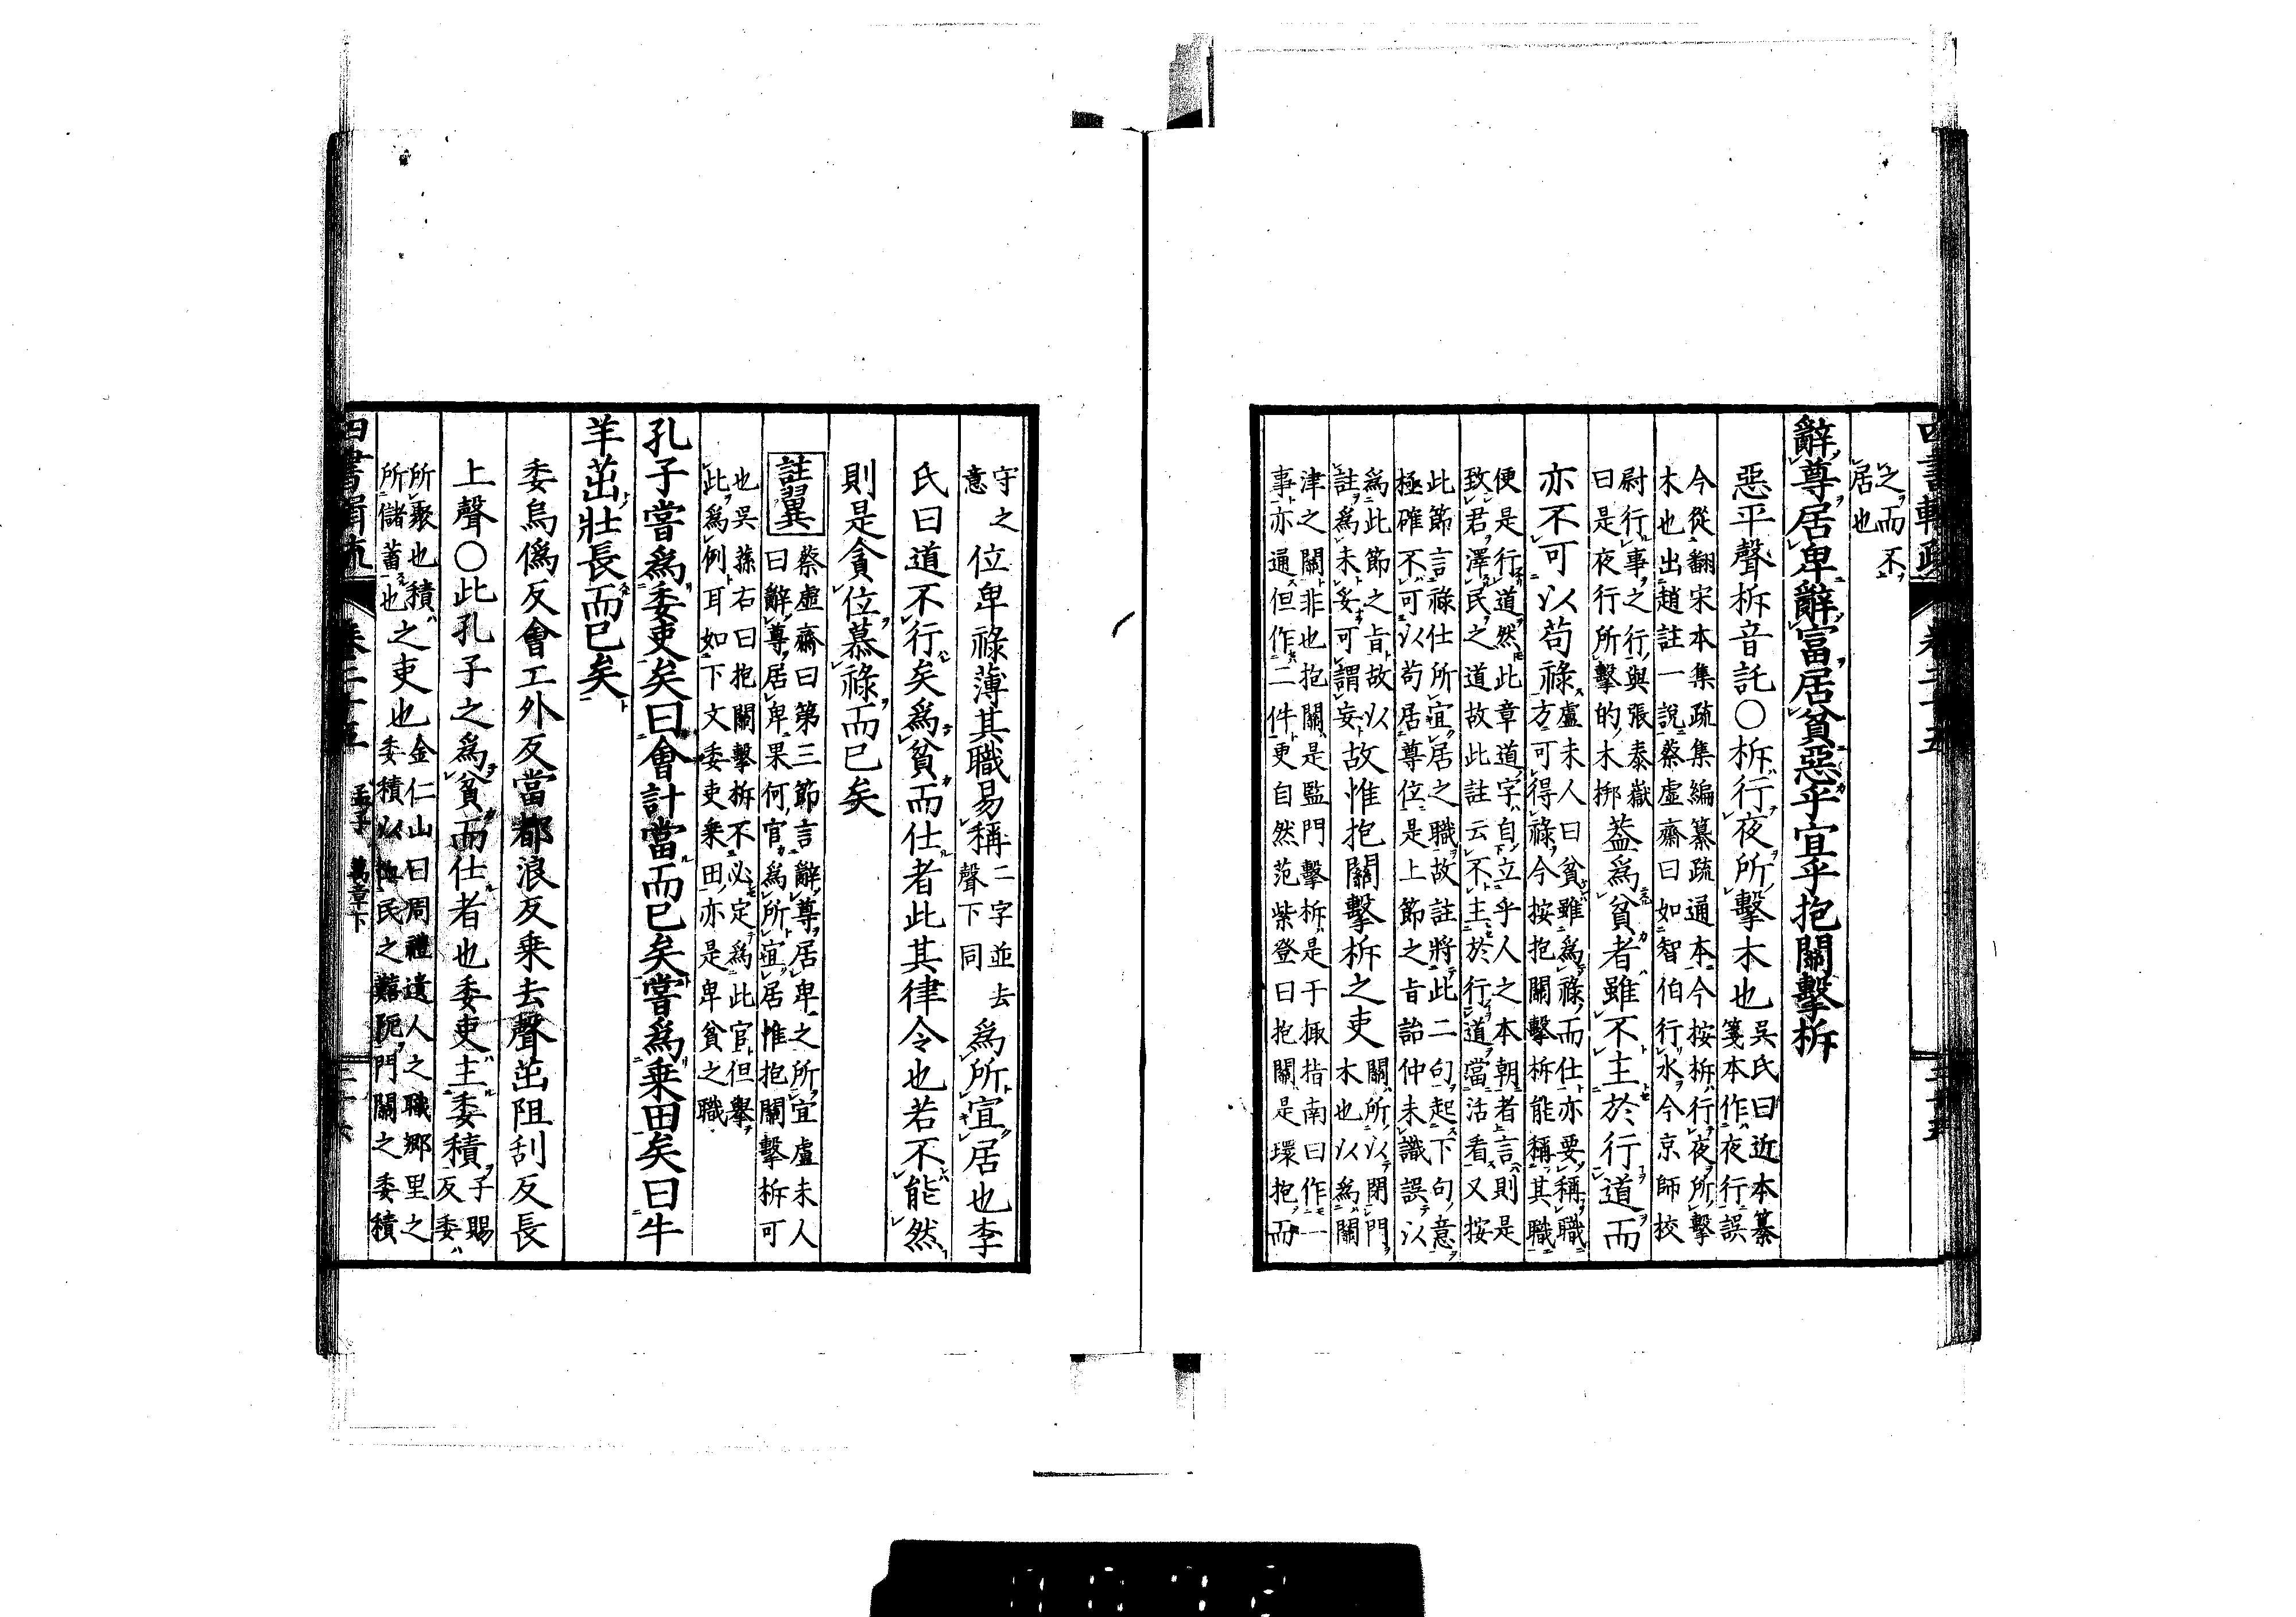 之而不
居也
辭尊居卑辭富居貧惡乎宜乎抱關擊柝
惡平聲柝音託○柝行夜所擊木也吳氏曰近本纂
箋本作夜行誤
今從翻宋本集疏集編纂疏通本今按柝行夜所擊
木也出趙註一說蔡虛齋曰如智伯行水今京師校
尉行事之行與張泰嶽
曰是夜行所擊的木梆蓋爲貧者雖不主於行道而
亦不可以苟祿盧未人曰貧雖爲祿而仕亦要稱職
方可得祿今按抱關擊柝能稱其職
便是行道然此章道字自立乎人之本朝者言則是
致君澤民之道故此註云不主於行道當活看又按
此節言祿仕所宜居之職故註將此二句起下句意
極確不可以苟居尊位是上節之旨詒仲未識誤以
爲此節之旨故以
註爲未妥可謂妄故惟抱關擊柝之吏關所以閉門
木也以爲關
津之關非也抱關是監門擊柝是于掫指南曰作一
事亦通但作二件更自然范紫登曰抱關是環抱而
守之
意位卑祿薄其職易稱二字並去
聲下同爲所宜居也李
氏曰道不行矣爲貧而仕者此其律令也若不能然
則是貪位慕祿而已矣
註翼蔡虛齋曰第三節言辭尊居卑之所宜盧未人
曰辭尊居卑果何官爲所宜居惟抱關擊柝可
也吳蓀右曰抱關擊柝不必定爲此官但舉
此爲例耳如下文委吏乗田亦是卑貧之職
孔子嘗爲委吏矣曰會計當而已矣嘗爲乗田矣曰牛
羊茁壯長而已矣
委烏僞反會工外反當都浪反乗去聲茁阻刮反長
上聲○此孔子之爲貧而仕者也委吏主委積子賜
反委
所聚也積
所儲蓄也之吏也金仁山曰周禮遺人之職鄉里之
委積以恤民之囏阨門關之委積
四書輯疏 卷二十五 孟子 萬章下